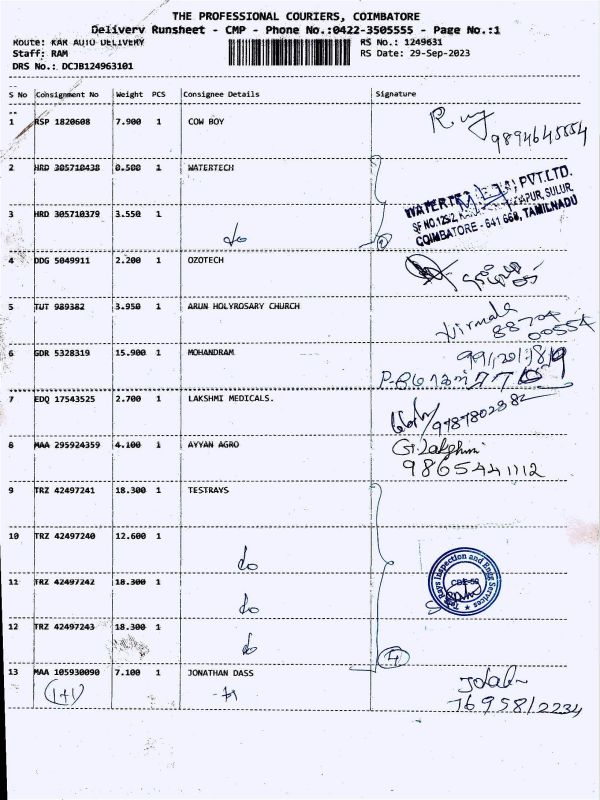 THE PROFESSIONAL COURIERS, COIMBATORE
Delivery Runsheet - CMP - Phone No.:0422-3505555 - Page No.:1
Route: KAR AUTO DELIVERY RS No.: 1249631
Staff: RAM RS Date: 29-Sep-2023
DRS No.: DCJB124963101
S No Consignment No Weight PCS Consignee Details Signature
1 RSP 1820608 7.900 1 COW BOY
9894645554
2 HRD 305710438 0.500 1 WATERTECH
PVT.LTD.
3 HRD 305710379 3.550 1 SULUR,
do COIMBATORE - 641 668, TAMILNADU
4 DDG 5049911 2.200 1 OZOTECH
5 TUT 989382 3.950 1 ARUN HOLYROSARY CHURCH Nirmala
88704
00554
6 GDR 5328319 15.900 1 MOHANDRAM
7 EDQ 17543525 2.700 1 LAKSHMI MEDICALS.
9787802382
8 MAA 295924359 4.100 1 AYYAN AGRO G. Lakshmi
9865441112
9 TRZ 42497241 18.300 1 TESTRAYS
10 TRZ 42497240 12.600 1
do
11 TRZ 42497242 18.300 1
do
Test Rays Inspection and Engg Services
12 TRZ 42497243 18.300 1
do
4
13 MAA 105930090 7.100 1 JONATHAN DASS
(1+1)
7695812234